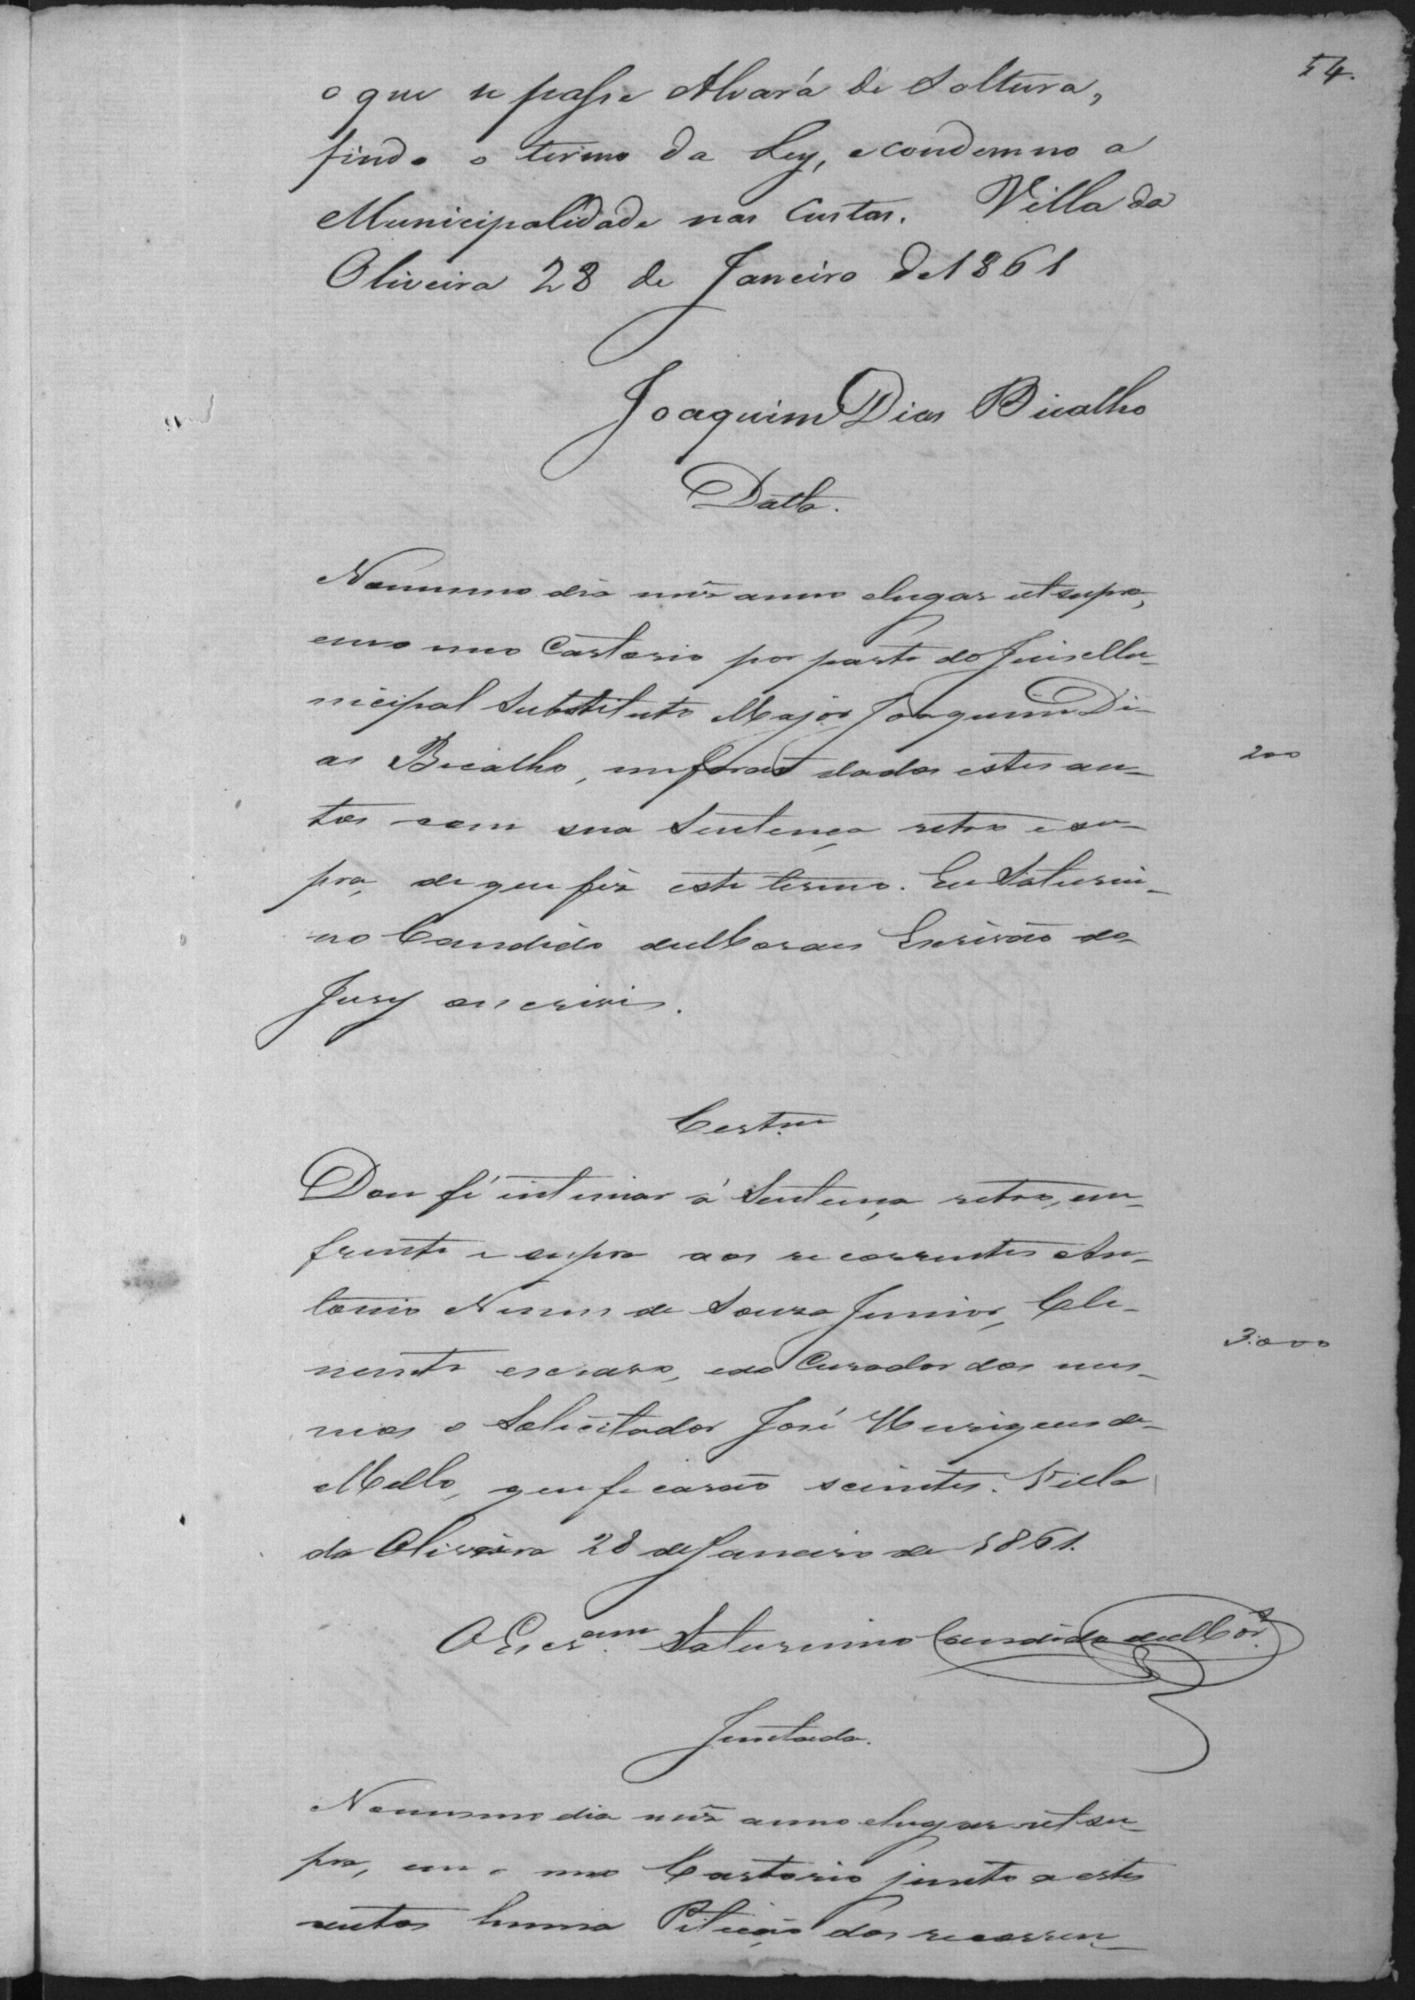 54.
o que se passe Alvará de Soltura,
findo o termo da Ley, e condemno a
Municipalidade nas Custas. Villa da
Oliveira 28 de Janeiro de 1861
Joaquim Dias Bicalho
Datta.
No mesmo dia mês anno e lugar ut supra,
em o meo Cartorio por parte do Juis Mu-
nicipal Substituto Major Joaquim Di-
as Bicalho, me forão dados estes au-
200
tos com sua Sentença retro e su-
pra, de que fiz este termo. Eu Saturni-
no Candido de Moraes Escrivão do
Jury o escrivi.
Certam
Dou fé intimar á Sentença retro, em
frente e supra aos recorrentes An-
tonio Nunes de Souza Junior, Cle-
mente escravo, e ao Curador dos mes-
3:000
mos o Solicitador José Henriques de
Mello, que ficarão scientes. Villa
da Oliveira 28 de Janeiro de 1861.
O Escram Saturnino Candido de Mor.
Juntada.
No mesmo dia mês anno e lugar ut su-
pra, em o meo Cartorio junto a estes
autos huma Petição dos recorren-